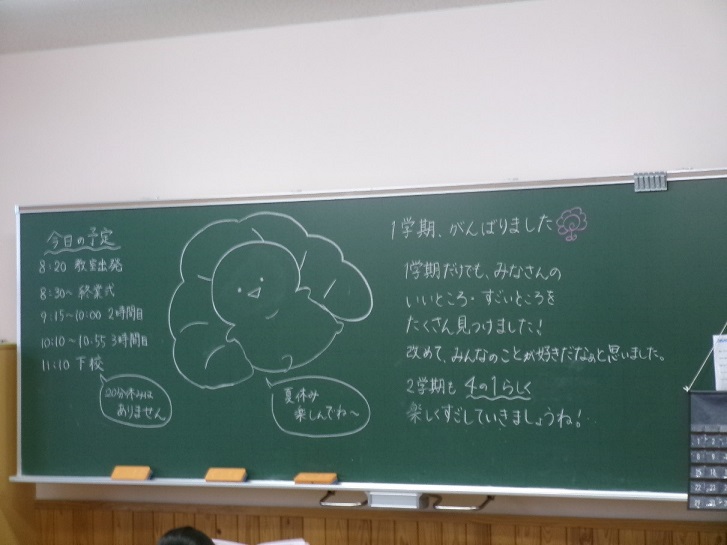 今日の予定
8:20 教室出発
8:30～ 終業式
9:15～10:00 2時間目
10:10～10:55 3時間目
11:10 下校
20分休みは
ありません
夏休み
楽しんでね～
1学期、がんばりました
1学期だけでも、みなさんの
いいところ・すごいところを
たくさん見つけました!
改めて、みんなのことが好きだなぁと思いました。
2学期も 4の1らしく
楽しくすごしていきましょうね!